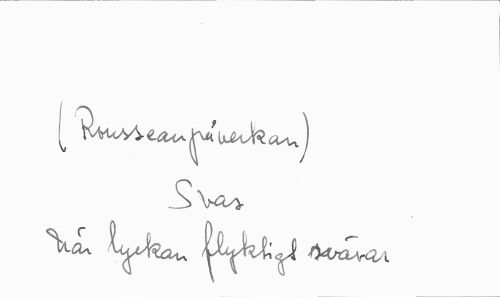 (Rousseaupåverkan)
Svas
När lyckan flyktigt svävar